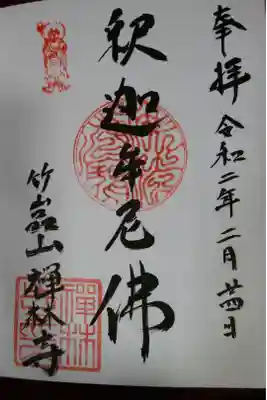 奉拝 令和二年二月廿四日
釈迦牟尼佛
竹嵓山 禅林寺